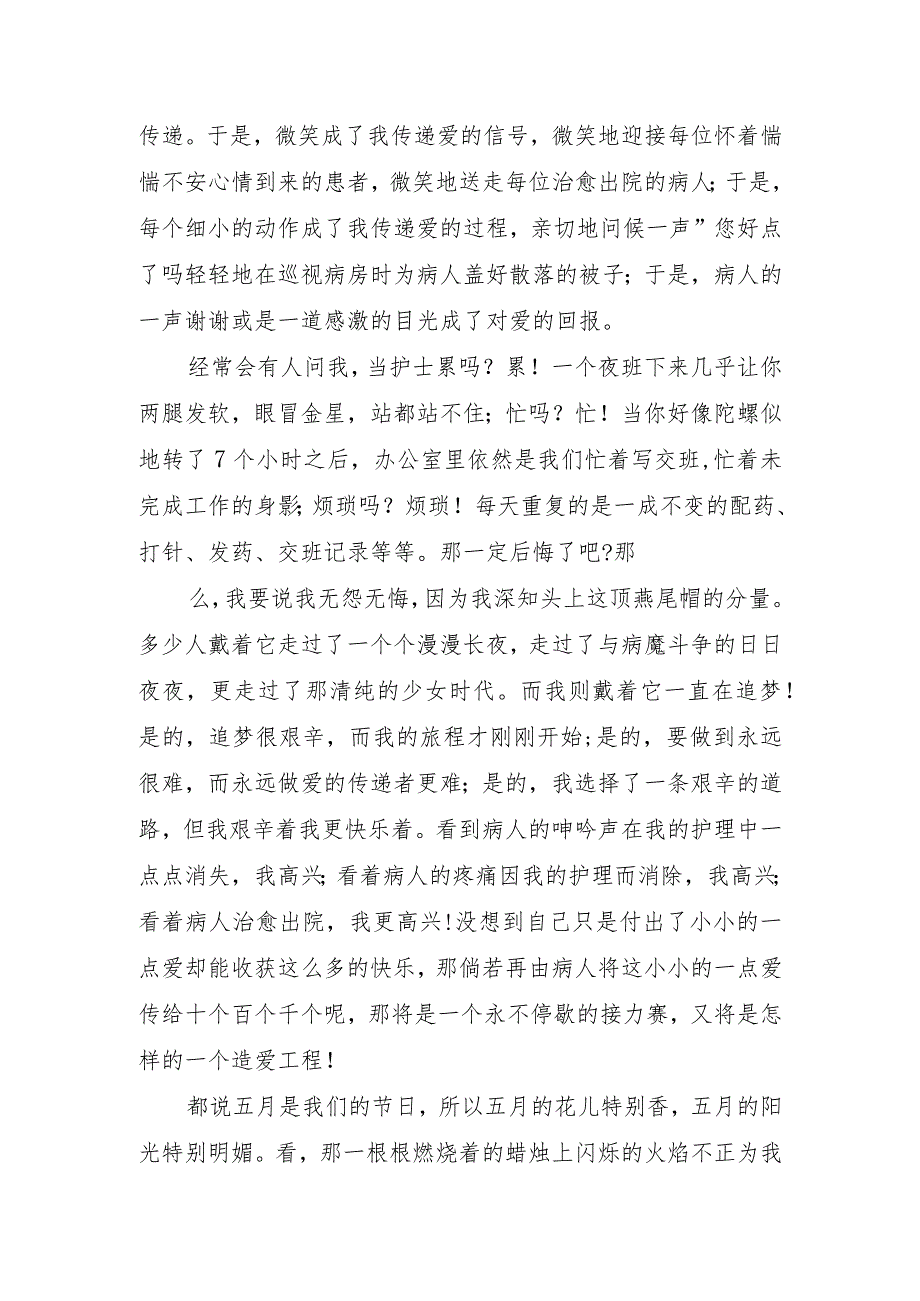 传递。于是，微笑成了我传递爱的信号，微笑地迎接每位怀着惴
惴不安心情到来的患者，微笑地送走每位治愈出院的病人；于是，
每个细小的动作成了我传递爱的过程，亲切地问候一声”您好点
了吗轻轻地在巡视病房时为病人盖好散落的被子；于是，病人的
一声谢谢或是一道感激的目光成了对爱的回报。
经常会有人问我，当护士累吗？累！一个夜班下来几乎让你
两腿发软，眼冒金星，站都站不住；忙吗？忙！当你好像陀螺似
地转了7个小时之后，办公室里依然是我们忙着写交班,忙着未
完成工作的身影；烦琐吗？烦琐！每天重复的是一成不变的配药、
打针、发药、交班记录等等。那一定后悔了吧?那
么，我要说我无怨无悔，因为我深知头上这顶燕尾帽的分量。
多少人戴着它走过了一个个漫漫长夜，走过了与病魔斗争的日日
夜夜，更走过了那清纯的少女时代。而我则戴着它一直在追梦！
是的，追梦很艰辛，而我的旅程才刚刚开始；是的，要做到永远
很难，而永远做爱的传递者更难；是的，我选择了一条艰辛的道
路，但我艰辛着我更快乐着。看到病人的呻吟声在我的护理中一
点点消失，我高兴；看着病人的疼痛因我的护理而消除，我高兴；
看着病人治愈出院，我更高兴！没想到自己只是付出了小小的一
点爱却能收获这么多的快乐，那倘若再由病人将这小小的一点爱
传给十个百个千个呢，那将是一个永不停歇的接力赛，又将是怎
样的一个造爱工程！
都说五月是我们的节日，所以五月的花儿特别香，五月的阳
光特别明媚。看，那一根根燃烧着的蜡烛上闪烁的火焰不正为我